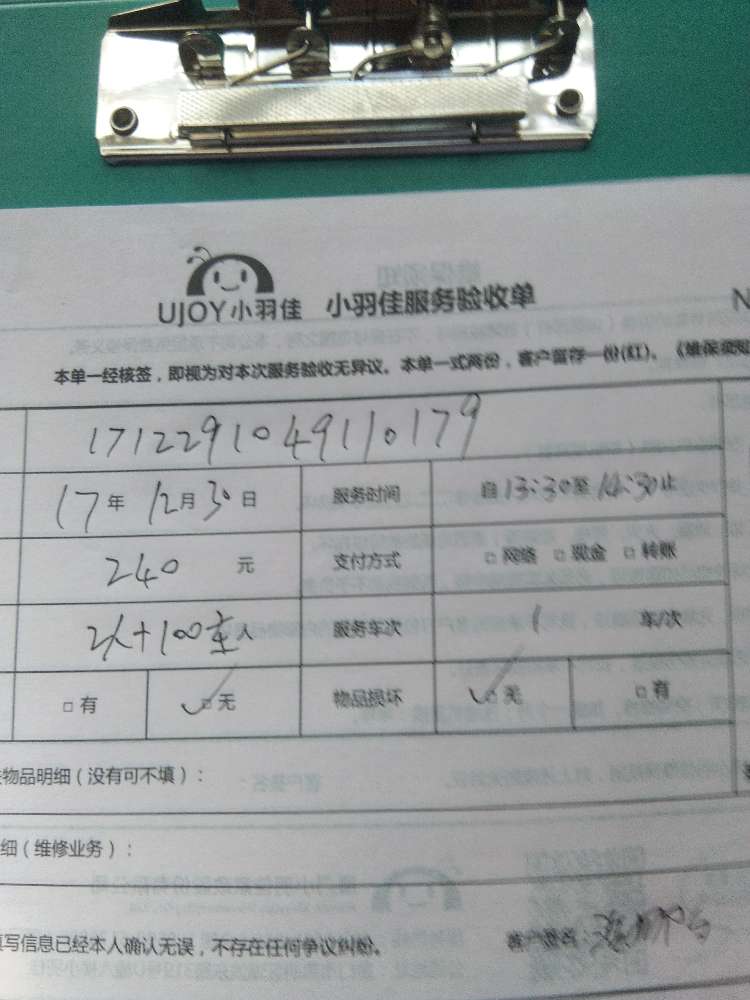 UJOY小羽佳 小羽佳服务验收单
N
本单一经核签，即视为对本次服务验收无异议。本单一式两份，客户留存一份(红)。《维保须知
1712291049110179
17年 12月30日 服务时间 自13:30至14:30止
240 元 支付方式 □网络 □现金 □转账
2人+100 人 服务车次 1 车/次
□有 □无 物品损坏 □无 □有
物品明细（没有可不填）：
细（维修业务）：
填写信息已经本人确认无误，不存在任何争议纠纷。 客户签名：